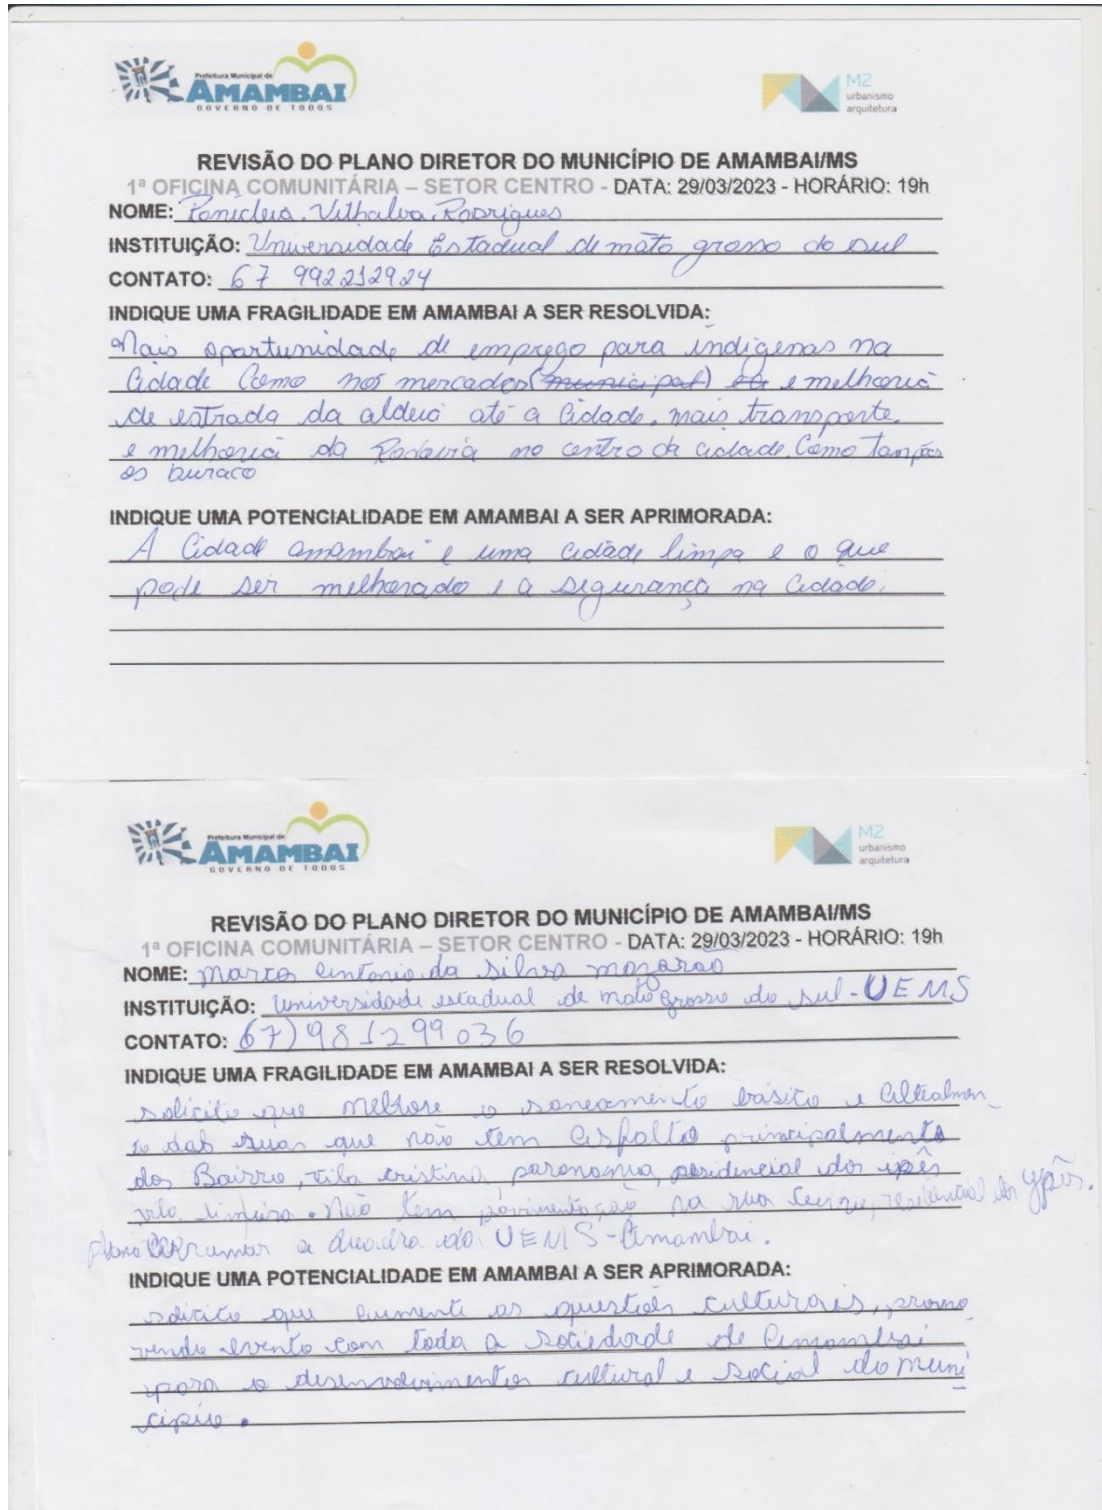 Prefeitura Municipal de
AMAMBAI
GOVERNO DE TODOS
M2
urbanismo
arquitetura
REVISÃO DO PLANO DIRETOR DO MUNICÍPIO DE AMAMBAI/MS
1ª OFICINA COMUNITÁRIA – SETOR CENTRO - DATA: 29/03/2023 - HORÁRIO: 19h
NOME: Vilhalva Rodrigues
INSTITUIÇÃO: Universidade Estadual de mato grosso do sul
CONTATO: 67 992212924
INDIQUE UMA FRAGILIDADE EM AMAMBAI A SER RESOLVIDA:
Mais oportunidade de emprego para indígenas na
Cidade Como nos mercados (municipal) e melhoria
de estrada da aldeia até a Cidade. mais transporte
e melhoria da Rodovia no centro da cidade. Como tampar
os buraco
INDIQUE UMA POTENCIALIDADE EM AMAMBAI A SER APRIMORADA:
A Cidade amambai e uma cidade limpa e o que
pode ser melhorado e a segurança na Cidade.
Prefeitura Municipal de
AMAMBAI
GOVERNO DE TODOS
M2
urbanismo
arquitetura
REVISÃO DO PLANO DIRETOR DO MUNICÍPIO DE AMAMBAI/MS
1ª OFICINA COMUNITÁRIA – SETOR CENTRO - DATA: 29/03/2023 - HORÁRIO: 19h
NOME: Marcos Antonio da Silva mozarão
INSTITUIÇÃO: Universidade estadual de mato grosso do sul - UEMS
CONTATO: 67) 981299036
INDIQUE UMA FRAGILIDADE EM AMAMBAI A SER RESOLVIDA:
solicito que melhore o saneamento básico e
das ruas que não tem asfalto principalmente
dos Bairro, vila cristina, residencial dos ipês
vila limeira. Não tem pavimentação na rua residencial dos ypês.
arrumar a quadra da UEMS-Amambai.
INDIQUE UMA POTENCIALIDADE EM AMAMBAI A SER APRIMORADA:
solicito que aumente as questões culturais, promo
vendo evento com toda a sociedade de Amambai
para o desenvolvimento cultural e social do muni
cípio.